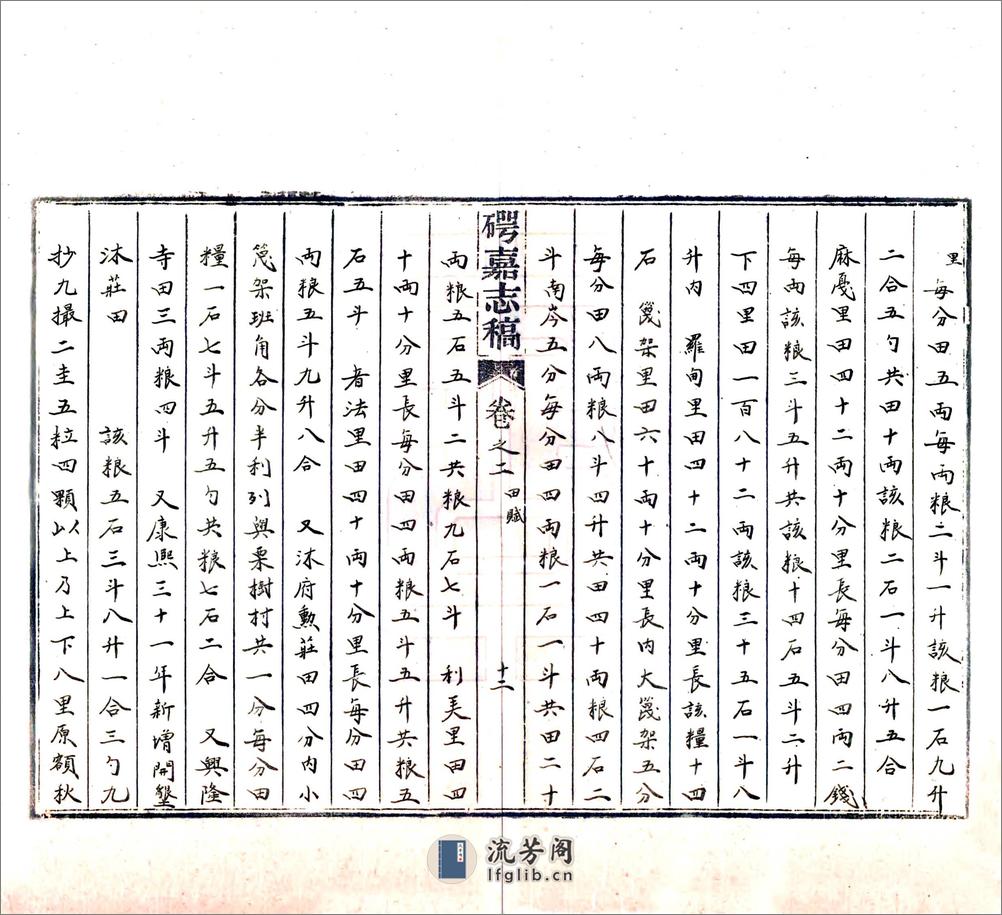 里
每分田五両每両粮二斗一升該粮一石九升
二合五勺共田十両該粮二石一斗八升五合
麻戛里田四十二両十分里長每分田四両二錢
每両該粮三斗五升共該粮十四石五斗二升
下四里田一百八十二両該粮三十五石一斗八
升内 羅甸里田四十二両十分里長該糧十四
石 篾架里田六十両十分里長内大篾架五分
每分田八両粮八斗四升共田四十両粮四石二
斗南岑五分每分田四両粮一石一斗共田二十
碍嘉志稿 卷之二 田賦 十二
両粮五石五斗二共粮九石七斗 利美里田四
十両十分里長每分田四両粮五斗五升共粮五
石五斗 者法里田四十両十分里長每分田四
両粮五斗九升八合 又沐府勲莊田四分内小
篾架班角各分半利列與栗樹村共一分每分田
糧一石七斗五升五勺共粮七石二合 又興隆
寺田三両粮四斗 又康熙三十一年新增開墾
沐莊田 該粮五石三斗八升一合三勺九
抄九撮二圭五粒四顆以上乃上下八里原額秋
流芳阁
lfglib.cn